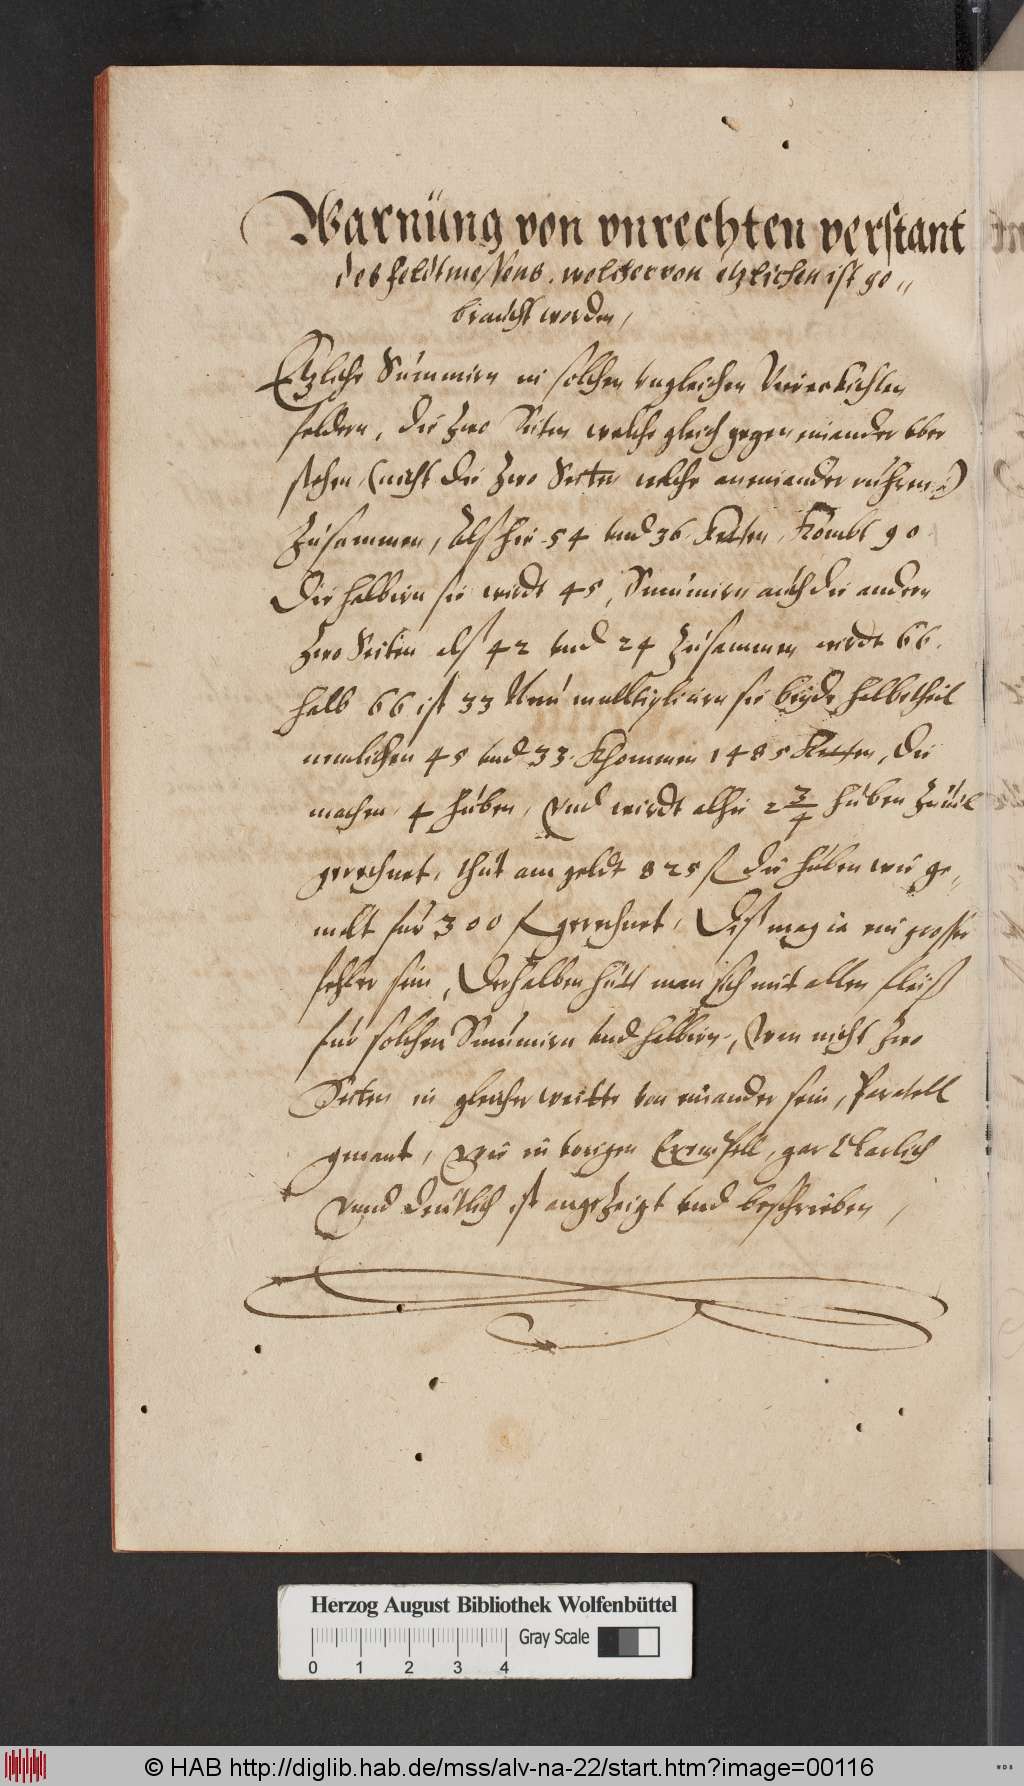 Warnüng von vnrechten verstant
des feldtmessens. welcher von etzlichen ist ge„
braucht worden,
Etzliche Summirn in solchen vngleichen Viereckichten
feldern, die zwo Seiten welche gleich gegen einander vber
stehen (nicht die zwo Seiten welche aneinander rühren)
Zusammen, Alß hie 54 vnd 36 Ketten, Kombt 90
Die halbirn sie wirdt 45, Summirn auch die andern
zwo Seiten alß 42 vnd 24 zusammen wirdt 66.
halb 66 ist 33 Nun multipliciern sie beyde halbetheil
nemlichen 45 vnd 33. Khommen 1485 Ketten, die
machen 4 huben, Vnd wirdt alhie 2 3/4 huben zuuil
gerechnet, thut am geldt 825 f die huben wie ge„
melt für 300 f gerechnet, Diß mag ia ein grosser
fehler sein, Derhalben hütt man sich mit allen fleiß
für solchen Summirn vnd halbirn, Wen nicht zwo
Seiten in gleicher weitte von einander sein, Paralell
genant, Wie in vorigen Exempell, gar klarlich
Vnnd deutlich ist angezeigt vnd beschrieben,
Herzog August Bibliothek Wolfenbüttel
Gray Scale
0 1 2 3 4
© HAB http://diglib.hab.de/mss/alv-na-22/start.htm?image=00116